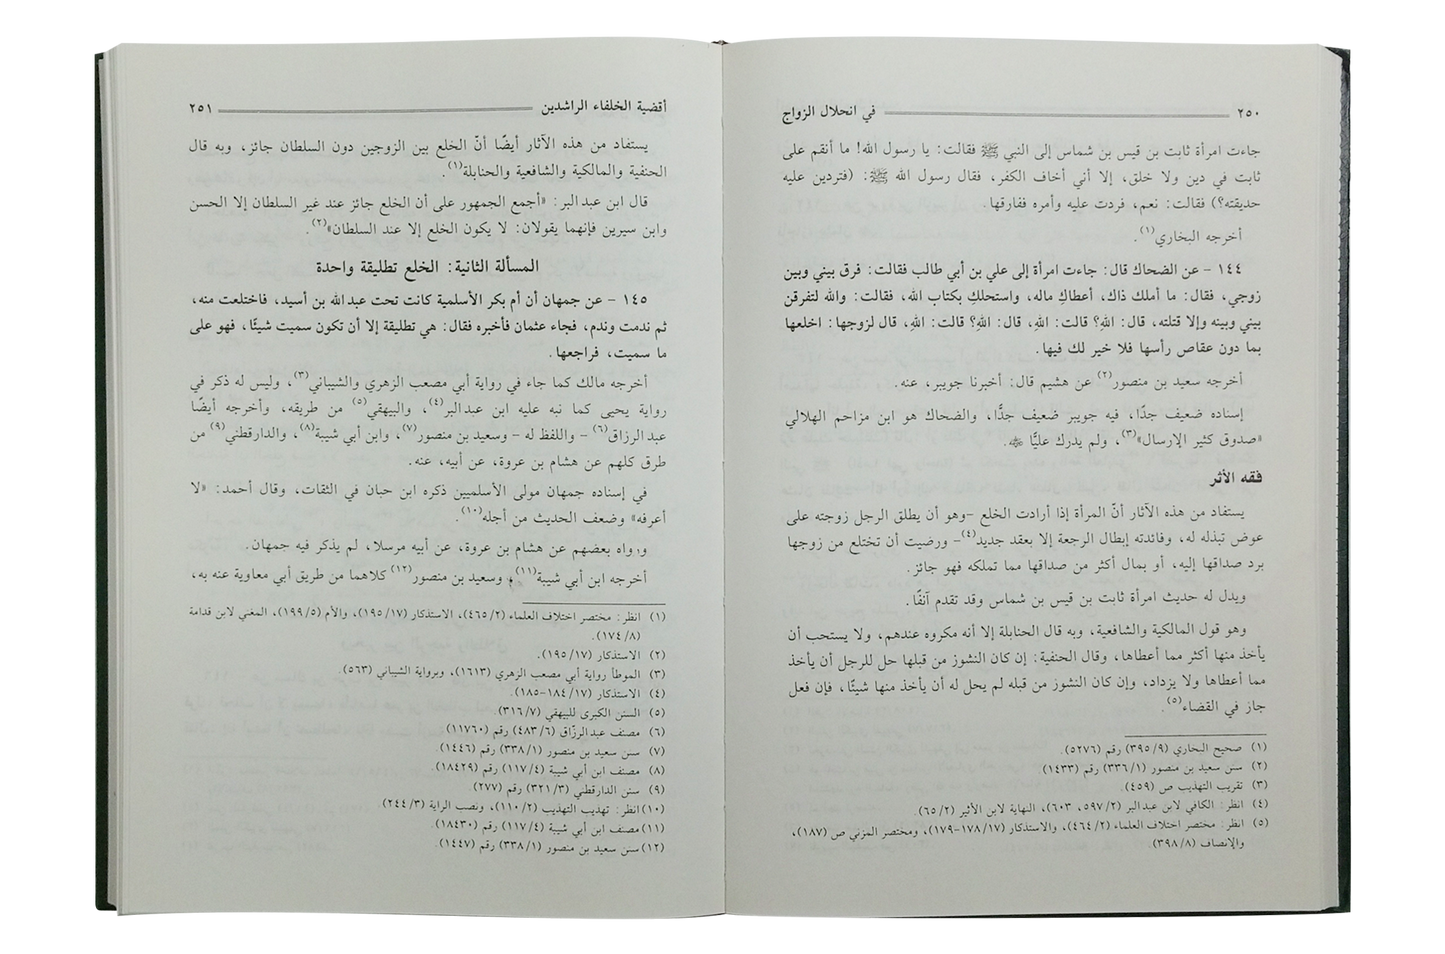 ٢٥٠ في انحلال الزواج
جاءت امرأة ثابت بن قيس بن شماس إلى النبي ﷺ فقالت: يا رسول الله! ما أنقم على
ثابت في دين ولا خلق، إلا أني أخاف الكفر، فقال رسول الله ﷺ: (فتردين عليه
حديقته؟) فقالت: نعم، فردت عليه وأمره ففارقها.
أخرجه البخاري(١).
١٤٤ - عن الضحاك قال: جاءت امرأة إلى علي بن أبي طالب فقالت: فرق بيني وبين
زوجي، فقال: ما أملك ذاك، أعطاكِ ماله، واستحلكِ بكتاب الله، فقالت: والله لتفرقن
بيني وبينه وإلا قتلته، قال: اللهِ؟ قالت: اللهِ، قال: اللهِ؟ قالت: اللهِ، قال لزوجها: اخلعها
بما دون عقاص رأسها فلا خير لك فيها.
أخرجه سعيد بن منصور(٢) عن هشيم قال: أخبرنا جويبر، عنه.
إسناده ضعيف جدًا، فيه جويبر ضعيف جدًّا، والضحاك هو ابن مزاحم الهلالي
«صدوق كثير الإرسال»(٣)، ولم يدرك عليًّا ﷺ.
فقه الأثر
يستفاد من هذه الآثار أنّ المرأة إذا أرادت الخلع -وهو أن يطلق الرجل زوجته على
عوض تبذله له، وفائدته إبطال الرجعة إلا بعقد جديد(٤)- ورضيت أن تختلع من زوجها
برد صداقها إليه، أو بمال أكثر من صداقها مما تملكه فهو جائز.
ويدل له حديث امرأة ثابت بن قيس بن شماس وقد تقدم آنفًا.
وهو قول المالكية والشافعية، وبه قال الحنابلة إلا أنه مكروه عندهم، ولا يستحب أن
يأخذ منها أكثر مما أعطاها، وقال الحنفية: إن كان النشوز من قبلها حل للرجل أن يأخذ
مما أعطاها ولا يزداد، وإن كان النشوز من قبله لم يحل له أن يأخذ منها شيئًا، فإن فعل
جاز في القضاء(٥).
(١) صحيح البخاري (٩/ ٣٩٥) رقم (٥٢٧٦).
(٢) سنن سعيد بن منصور (١/ ٣٣٦) رقم (١٤٣٣).
(٣) تقريب التهذيب ص (٤٥٩).
(٤) انظر: الكافي لابن عبدالبر (٢/ ٥٩٧، ٦٠٣)، النهاية لابن الأثير (٢/ ٦٥).
(٥) انظر: مختصر اختلاف العلماء (٢/ ٤٦٤)، والاستذكار (١٧/ ١٧٨-١٧٩)، ومختصر المزني ص (١٨٧)،
والإنصاف (٨/ ٣٩٨).
أقضية الخلفاء الراشدين ٢٥١
يستفاد من هذه الآثار أيضًا أنّ الخلع بين الزوجين دون السلطان جائز، وبه قال
الحنفية والمالكية والشافعية والحنابلة(١).
قال ابن عبدالبر: «أجمع الجمهور على أن الخلع جائز عند غير السلطان إلا الحسن
وابن سيرين فإنهما يقولان: لا يكون الخلع إلا عند السلطان»(٢).
المسألة الثانية: الخلع تطليقة واحدة
١٤٥ - عن جمهان أن أم بكر الأسلمية كانت تحت عبدالله بن أسيد، فاختلعت منه،
ثم ندمت وندم، فجاء عثمان فأخبره فقال: هي تطليقة إلا أن تكون سميت شيئًا، فهو على
ما سميت، فراجعها.
أخرجه مالك كما جاء في رواية أبي مصعب الزهري والشيباني(٣)، وليس له ذكر في
رواية يحيى كما نبه عليه ابن عبدالبر(٤)، والبيهقي(٥) من طريقه، وأخرجه أيضًا
عبدالرزاق(٦) - واللفظ له - وسعيد بن منصور(٧)، وابن أبي شيبة(٨)، والدارقطني(٩) من
طرق كلهم عن هشام بن عروة، عن أبيه، عنه.
في إسناده جمهان مولى الأسلميين ذكره ابن حبان في الثقات، وقال أحمد: «لا
أعرفه» وضعف الحديث من أجله(١٠).
ورواه بعضهم عن هشام بن عروة، عن أبيه مرسلا، لم يذكر فيه جمهان.
أخرجه ابن أبي شيبة(١١)، وسعيد بن منصور(١٢) كلاهما من طريق أبي معاوية عنه به،
(١) انظر: مختصر اختلاف العلماء (٢/ ٤٦٥)، الاستذكار (١٧/ ١٩٥)، والأم (٥/ ١٩٩)، المغني لابن قدامة
(٨/ ١٧٤).
(٢) الاستذكار (١٧/ ١٩٥).
(٣) الموطأ رواية أبي مصعب الزهري (١٦١٣)، وبرواية الشيباني (٥٦٣).
(٤) الاستذكار (١٧/ ١٨٤-١٨٥).
(٥) السنن الكبرى للبيهقي (٧/ ٣١٦).
(٦) مصنف عبدالرزّاق (٦/ ٤٨٣) رقم (١١٧٦٠).
(٧) سنن سعيد بن منصور (١/ ٣٣٨) رقم (١٤٤٦).
(٨) مصنف ابن أبي شيبة (٤/ ١١٧) رقم (١٨٤٢٩).
(٩) سنن الدارقطني (٣/ ٣٢١) رقم (٢٧٧)
(١٠) انظر: تهذيب التهذيب (٢/ ١١٠)، ونصب الراية (٣/ ٢٤٤).
(١١) مصنف ابن أبي شيبة (٤/ ١١٧) رقم (١٨٤٣٠).
(١٢) سنن سعيد بن منصور (١/ ٣٣٨) رقم (١٤٤٧).